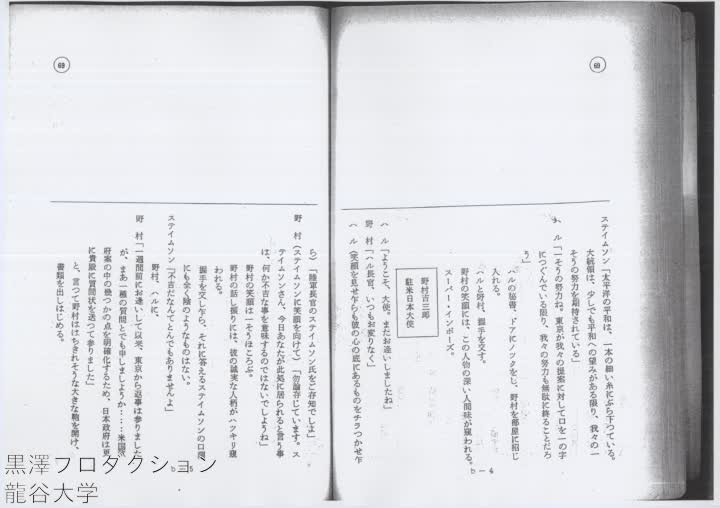 69
ステイムソン「太平洋の平和は、一本の細い糸にぶら下つている。
大統領は、少しでも平和への望みがある限り、我々の一
そうの努力を期待されている」
ハル「一そうの努力ね。東京が我々の提案に対して口を一の字
につぐんでいる限り、我々の努力も無駄に終ることだろ
う」
ハルの秘書、ドアにノックをし、野村を部屋に招じ
入れる。
ハルと野村、握手を交す。
野村の笑顔には、この人物の深い人間味が窺われる。
スーパー・インポーズ。
野村吉三郎
駐米日本大使
ハル「ようこそ、大使。またお逢いしましたね」
野村「ハル長官、いつもお変りなく」
ハル（笑顔を見せ乍らも彼の心の底にあるものをチラつかせ乍
b－4
69
ら）「陸軍長官のステイムソン氏をご存知でしよ」
野村（ステイムソンに笑顔を向けて）「勿論存じています。ス
テイムソンさん、今日あなたが此処に居られると言う事
は、何か不吉な事を意味するのではないでしようね」
野村の笑顔は一そうほころぶ。
野村の話し振りには、彼の誠実な人柄がハツキリ窺
われる。
握手を交し乍ら、それに答えるステイムソンの口調
にも全く陰のようなものはない。
ステイムソン「不吉だなんてとんでもありませんよ」
野村、ハルに、
野村「一週間前にお逢いして以来、東京から返事は参りました
が、まあ一種の質問とでも申しましようか‥‥米国政
府案の中の幾つかの点を明確化するため、日本政府は更
に貴殿に質問状を送つて参りました」
と、言つて野村ははちきれそうな大きな鞄を開け、
書類を出しはじめる。
b－5
黒澤プロダクション
龍谷大学